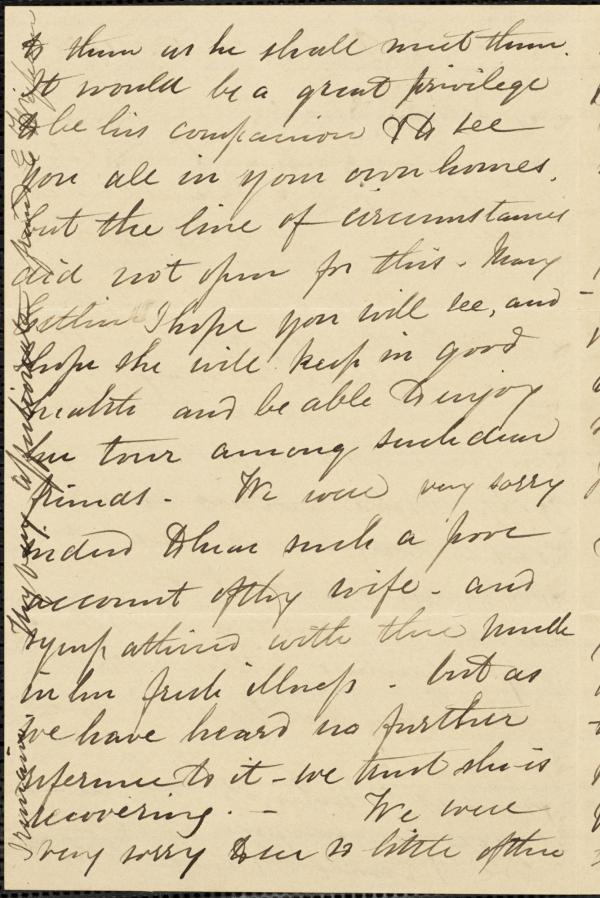 to them as he shall meet them.
It would be a great privilege
to be his companion & to see
you all in your own homes,
but the line of circumstances
did not open for this. Mary
Estlin I hope you will see, and
hope she will keep in good
health and be able to enjoy
her tour among such dear
friends - We were very sorry
indeed to hear such a poor
account of thy wife - and
sympathised with thee much
in her fresh illness - but as
we have heard no further
reference to it - we trust she is
recovering. - We were
very sorry to see so little of thee
I remain
Thy very affectionate friend